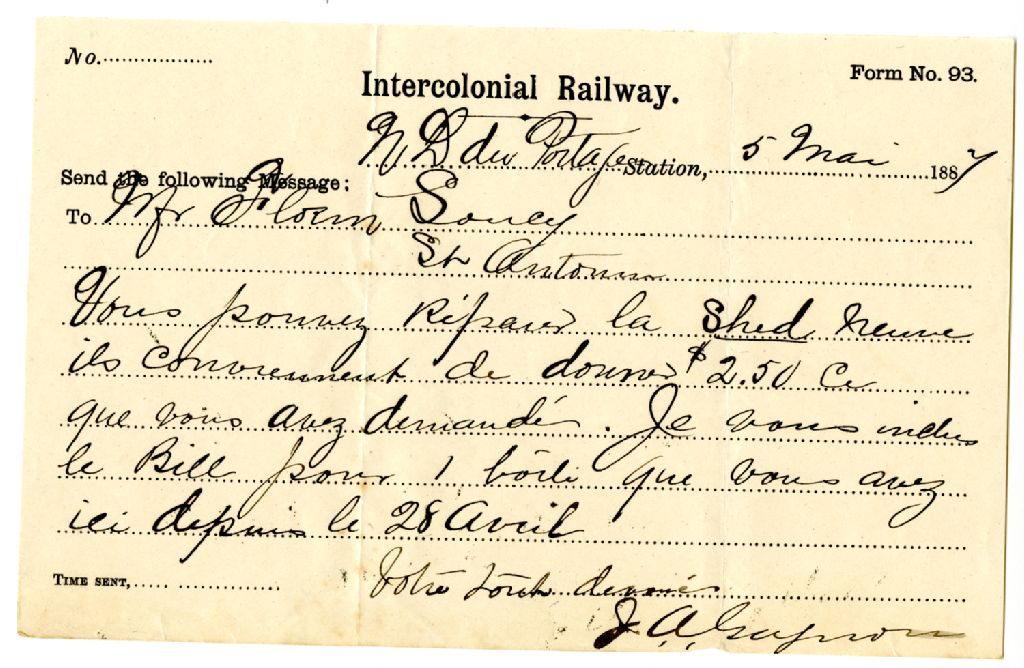 No.
Form No. 93.
Intercolonial Railway.
N D du Portage Station, 5 Mai 1887
Send the following Message;
To Mr Soucy
St
Vous pouvez Réparer la Shed Neuve
ils conviennent de donner $2.50 Ce
que vous avez demandé. Je vous inclus
le Bill pour 1 boîte que vous avez
ici depuis le 28 Avril
TIME SENT,
Votre tout
J. A. Gagnon